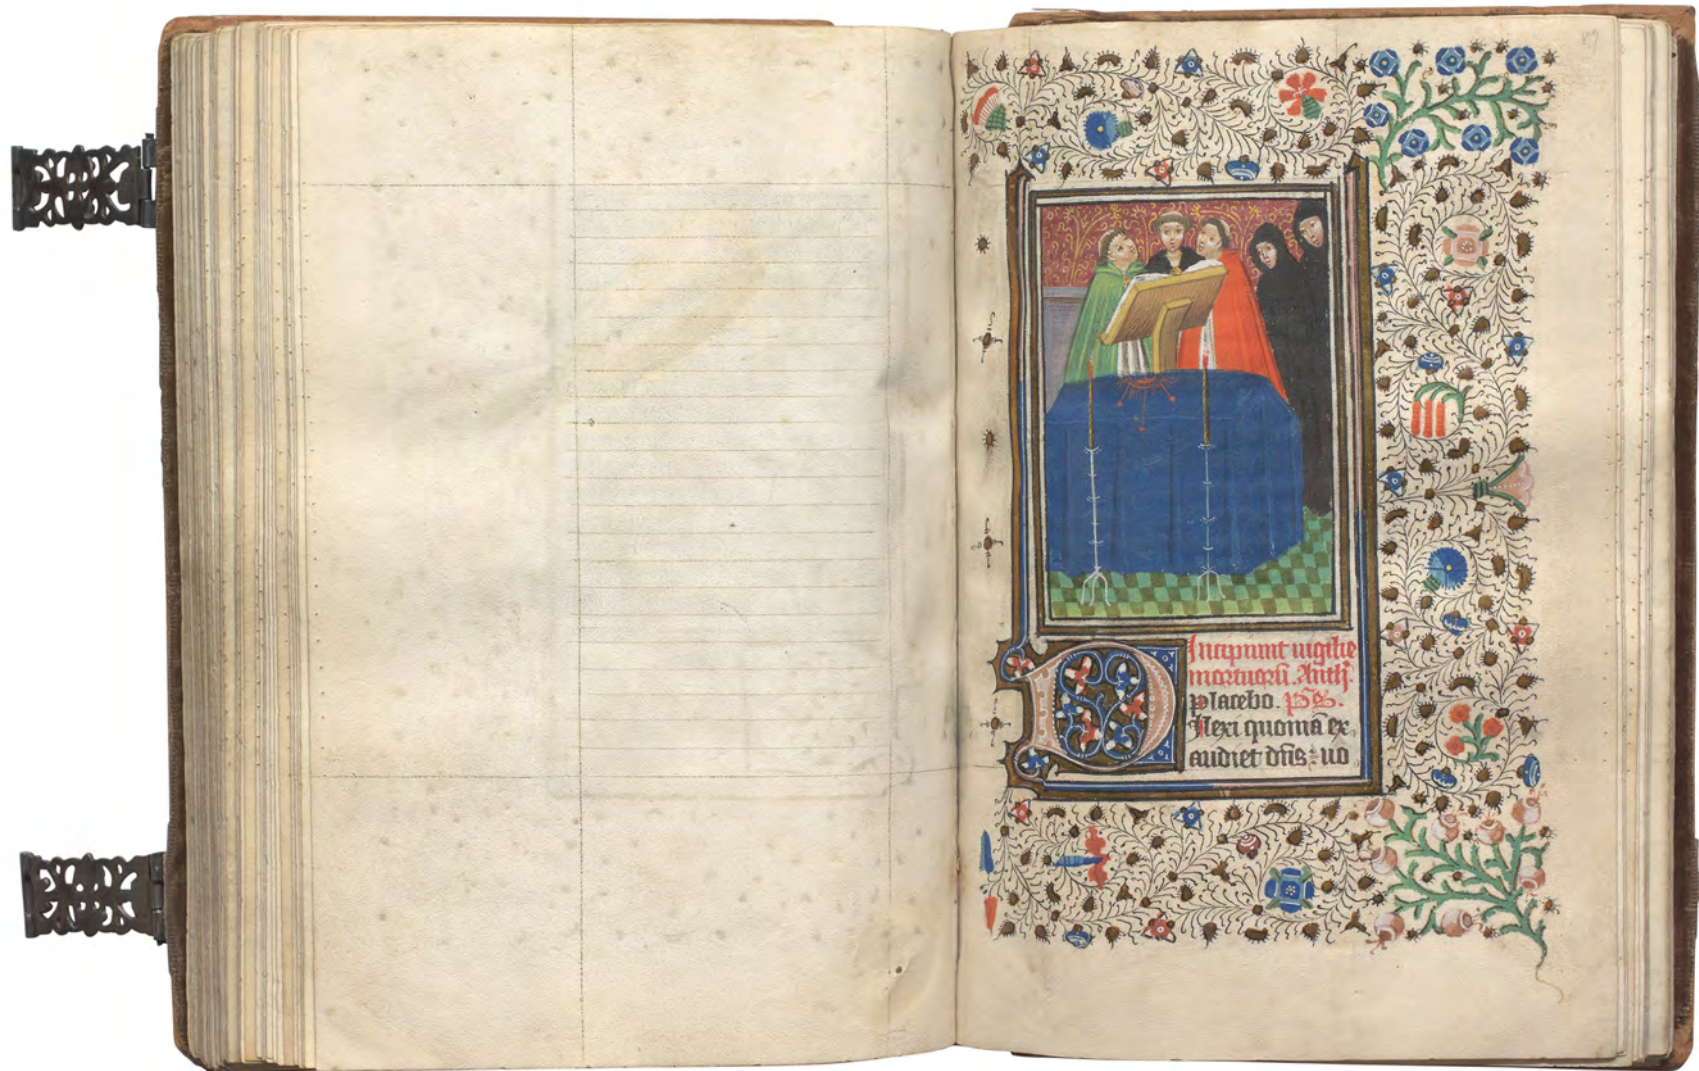 Incipiunt vigilie
mortuorū. Anth̄.
placebo. p̄s.
Dilexi quoniā ex
audiet dn̄s: uo